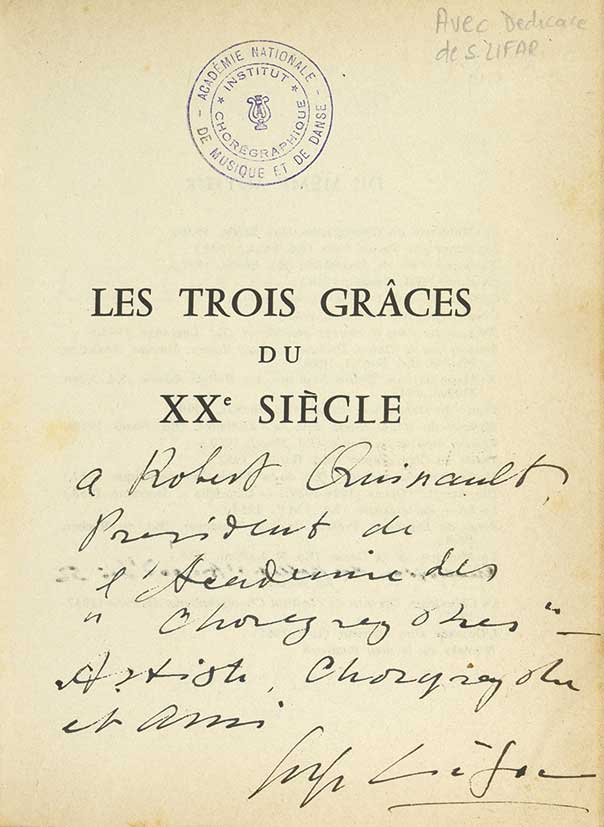 Avec Dedicace
de S. LIFAR
ACADÉMIE NATIONALE -
- DE MUSIQUE ET DE DANSE
* INSTITUT *
CHORÉGRAPHIQUE
LES TROIS GRÂCES
DU
XXe SIÈCLE
a Robert Quinault,
President de
l'Academie des
"Choregraphes" –
Artiste, Choregraphe
et ami
Serge Lifar